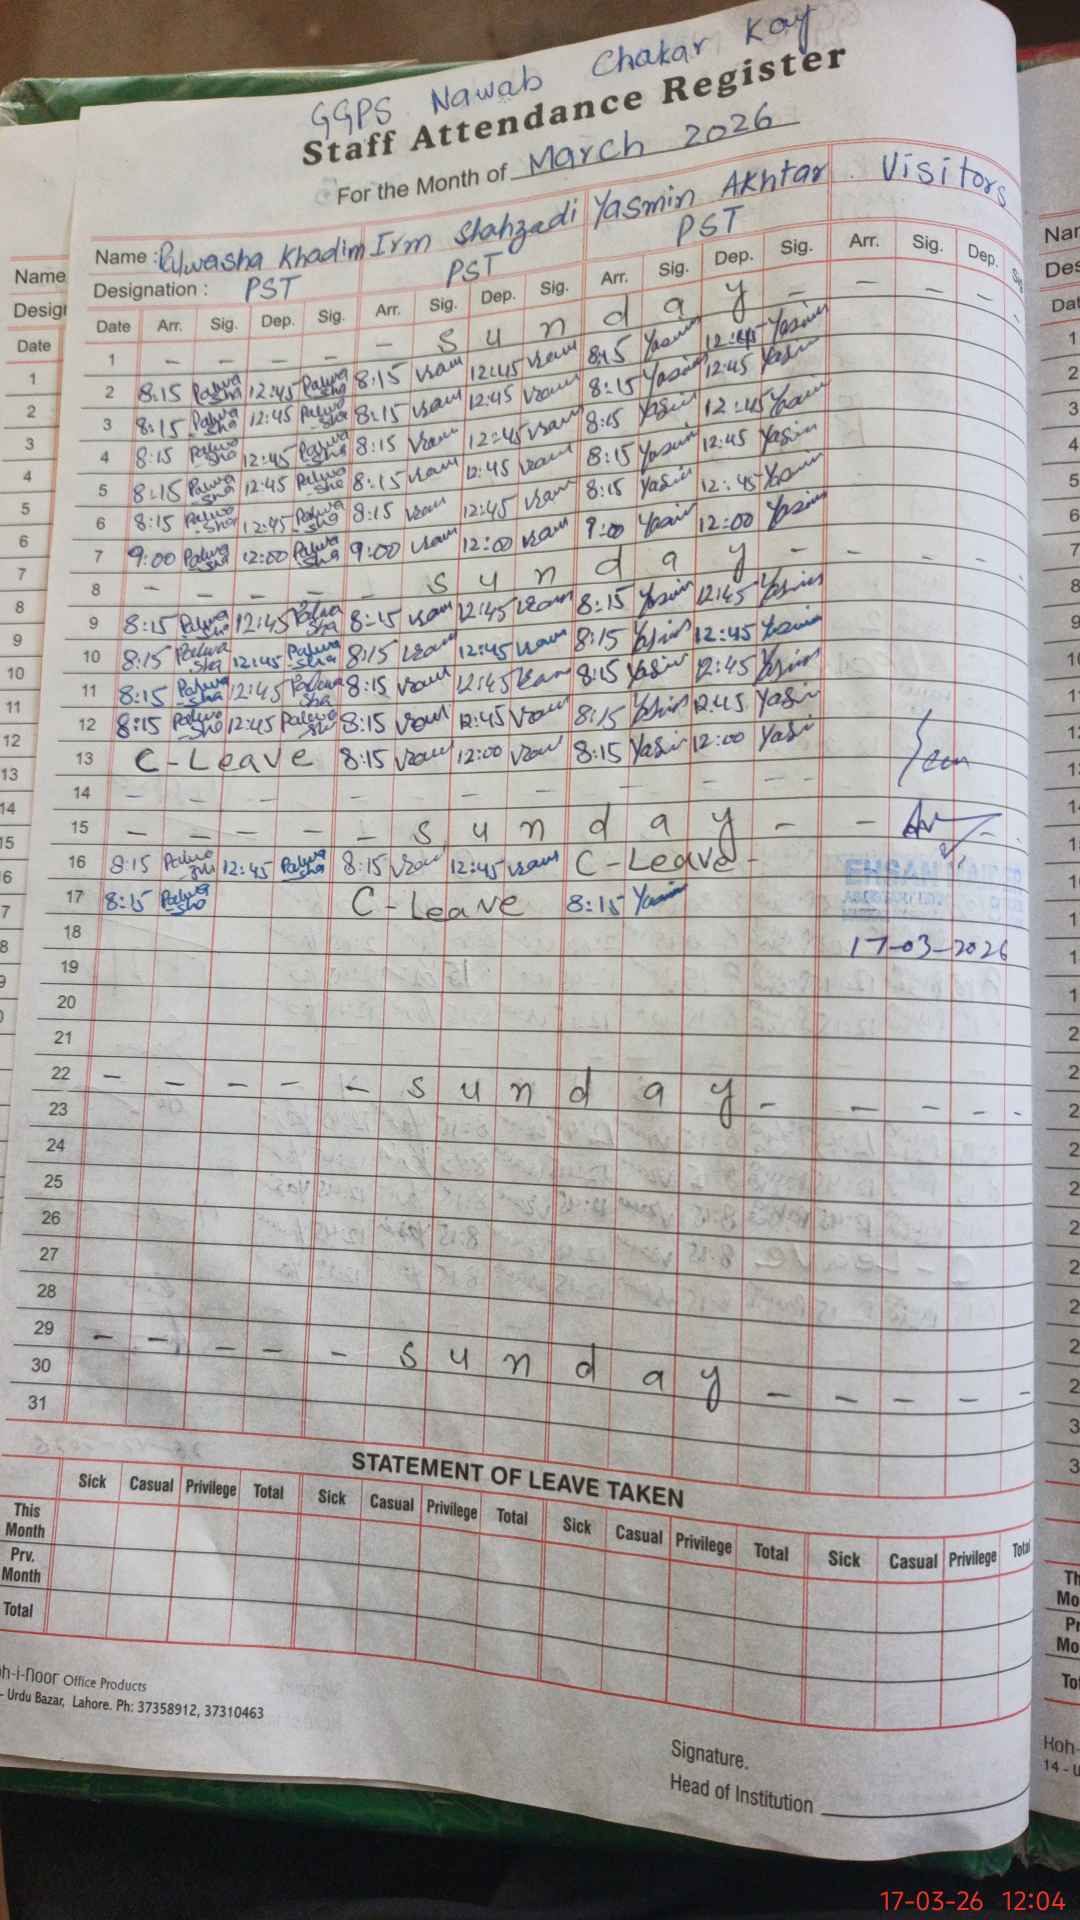 GGPS Nawab Chakar Kay
Staff Attendance Register
For the Month of March 2026
Name : Palwasha Khadim Irm Shahzadi Yasmin Akhtar Visitors
Designation : PST PST PST
Date Arr. Sig. Dep. Sig. Arr. Sig. Dep. Sig. Arr. Sig. Dep. Sig. Arr. Sig. Dep. Sig.
1 - - - - - s u n d a y - - - - -
2 8:15 Palwa-sha 12:45 Palwa-sha 8:15 12:45 8:15 Yasmin 12:45 Yasmin
3 8:15 Palwa-sha 12:45 Palwa-sha 8:15 12:45 8:15 Yasmin 12:45 Yasmin
4 8:15 Palwa-sha 12:45 Palwa-sha 8:15 12:45 8:15 Yasmin 12:45 Yasmin
5 8:15 Palwa-sha 12:45 Palwa-sha 8:15 12:45 8:15 Yasmin 12:45 Yasmin
6 8:15 Palwa-sha 12:45 Palwa-sha 8:15 12:45 8:15 Yasmin 12:45 Yasmin
7 9:00 Palwa-sha 12:00 Palwa-sha 9:00 12:00 9:00 Yasmin 12:00 Yasmin
8 - - - - - s u n d a y - - - - -
9 8:15 Palwa-sha 12:45 Palwa-sha 8:15 12:45 8:15 Yasmin 12:45 Yasmin
10 8:15 Palwa-sha 12:45 Palwa-sha 8:15 12:45 8:15 Yasmin 12:45 Yasmin
11 8:15 Palwa-sha 12:45 Palwa-sha 8:15 12:45 8:15 Yasmin 12:45 Yasmin
12 8:15 Palwa-sha 12:45 Palwa-sha 8:15 12:45 8:15 Yasmin 12:45 Yasmin
13 C-Leave 8:15 12:00 8:15 Yasmin 12:00 Yasmin
14 - - - - - - - - - - - -
15 - - - - - s u n d a y - - -
16 8:15 Palwa-sha 12:45 Palwa-sha 8:15 12:45 C-Leave -
17 8:15 Palwa-sha C-Leave 8:15 Yasmin
EHSAN
18 17-03-2026
19
20
21
22 - - - - - s u n d a y - - - - -
23
24
25
26
27
28
29 - - - - - s u n d a y - - - - -
30
31
STATEMENT OF LEAVE TAKEN
Sick Casual Privilege Total Sick Casual Privilege Total Sick Casual Privilege Total Sick Casual Privilege Total
This Month
Prv. Month
Total
oh-i-noor Office Products
- Urdu Bazar, Lahore. Ph: 37358912, 37310463
Signature.
Head of Institution
17-03-26 12:04